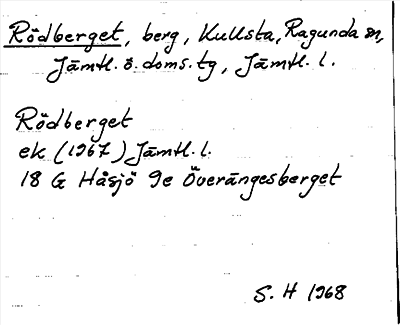 Rödberget, berg, Kullsta, Ragunda sn,
Jämtl. ö. doms. tg, Jämtl. l.
Rödberget
ek (1967) Jämtl. l.
18 G Håsjö 9e Överängesberget
S. H 1968